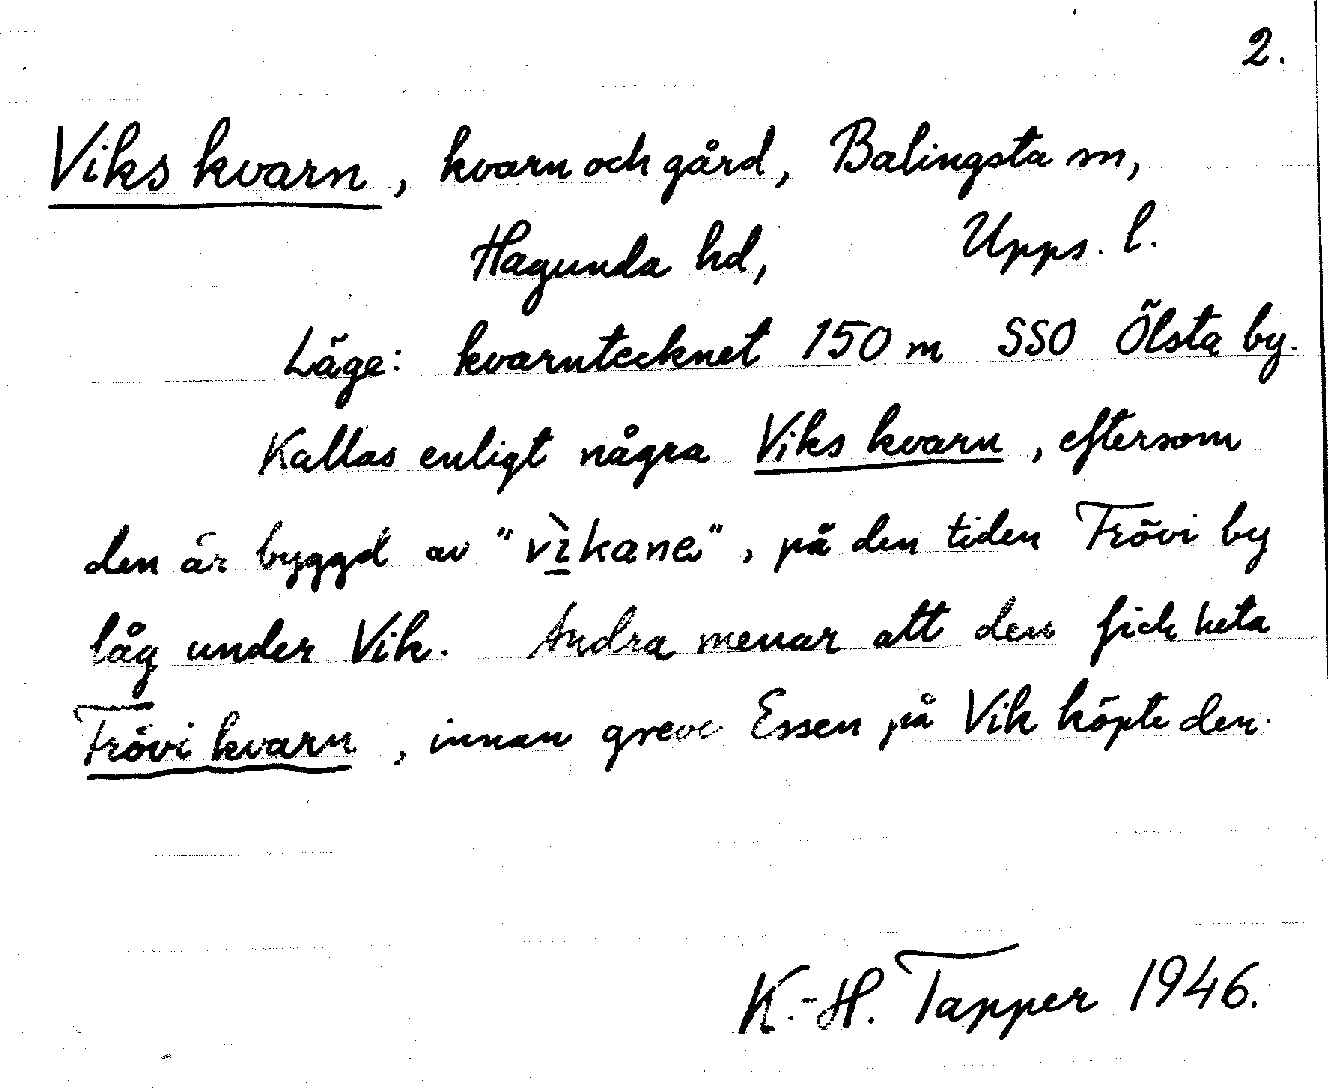 2.
Viks kvarn, kvarn och gård, Balingsta sn,
Hagunda hd, Upps. l.
Läge: kvarntecknet 150 m SSO Ölsta by.
Kallas enligt några Viks kvarn, eftersom
den är byggd av "vìkane", på den tiden Frövi by
låg under Vik. Andra menar att den fick heta
Frövi kvarn, innan greve Essen på Vik köpte den.
K.-H. Tapper 1946.